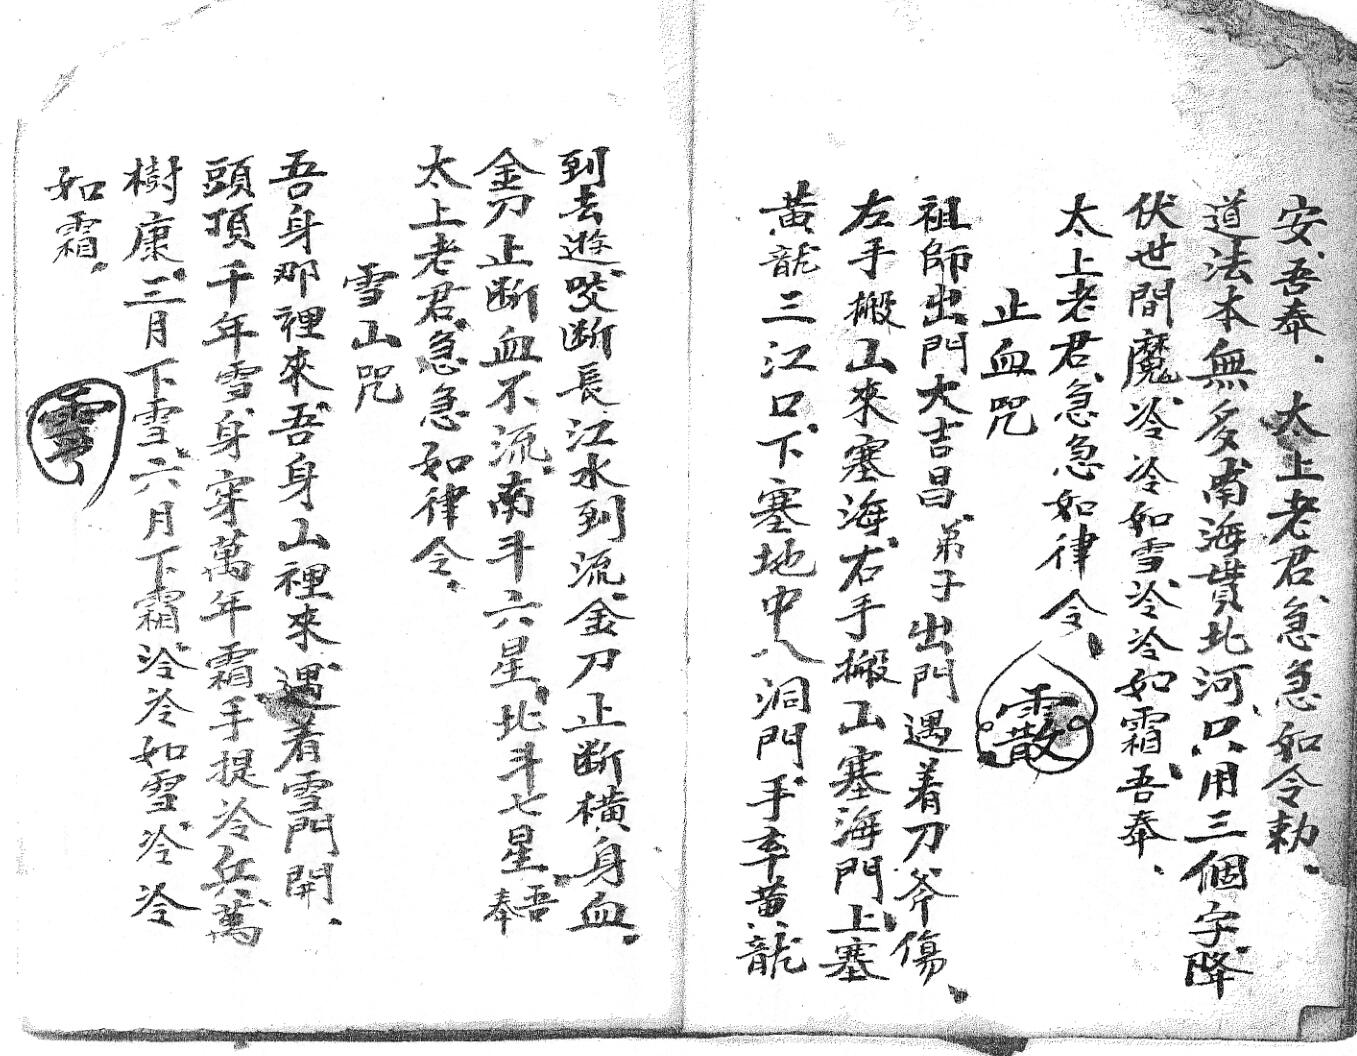 安吾奉太上老君急急如令勅
道法本無多南海貫北河只用三個字降
伏世間魔冷冷如雪冷冷如霜吾奉
太上老君急急如律令
止血咒
祖師出門大吉昌弟子出門遇着刀斧傷
左手搬山來塞海右手搬山塞海門上塞
黃龍三江口下塞地中八洞門手牽黃龍
到去遊咬断長江水到流金刀止断橫身血
金刀止断血不流南斗六星北斗七星吾奉
太上老君急急如律令
雪山咒
吾身那裡來吾身山裡來遇着雪門開
頭頂千年雪身穿萬年霜手提冷兵萬
樹康三月下雪六月下霜冷冷如雪冷冷
如霜